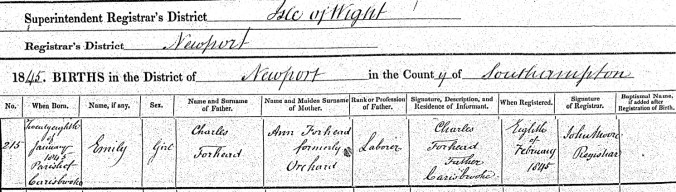 Superintendent Registrar's District Isle of Wight
Registrar's District Newport
1845. BIRTHS in the District of Newport in the County of Southampton
No. When Born. Name, if any. Sex. Name and Surname of Father. Name and Maiden Surname of Mother. Rank or Profession of Father. Signature, Description, and Residence of Informant. When Registered. Signature of Registrar. Baptismal Name, if added after Registration of Birth.
215 Twentyeighth of January 1845 Parish of Carisbrooke Emily Girl Charles Forhead Ann Forhead formerly Orchard Laborer Charles Forhead Father Carisbrooke Eighth of February 1845 John Moore Registrar